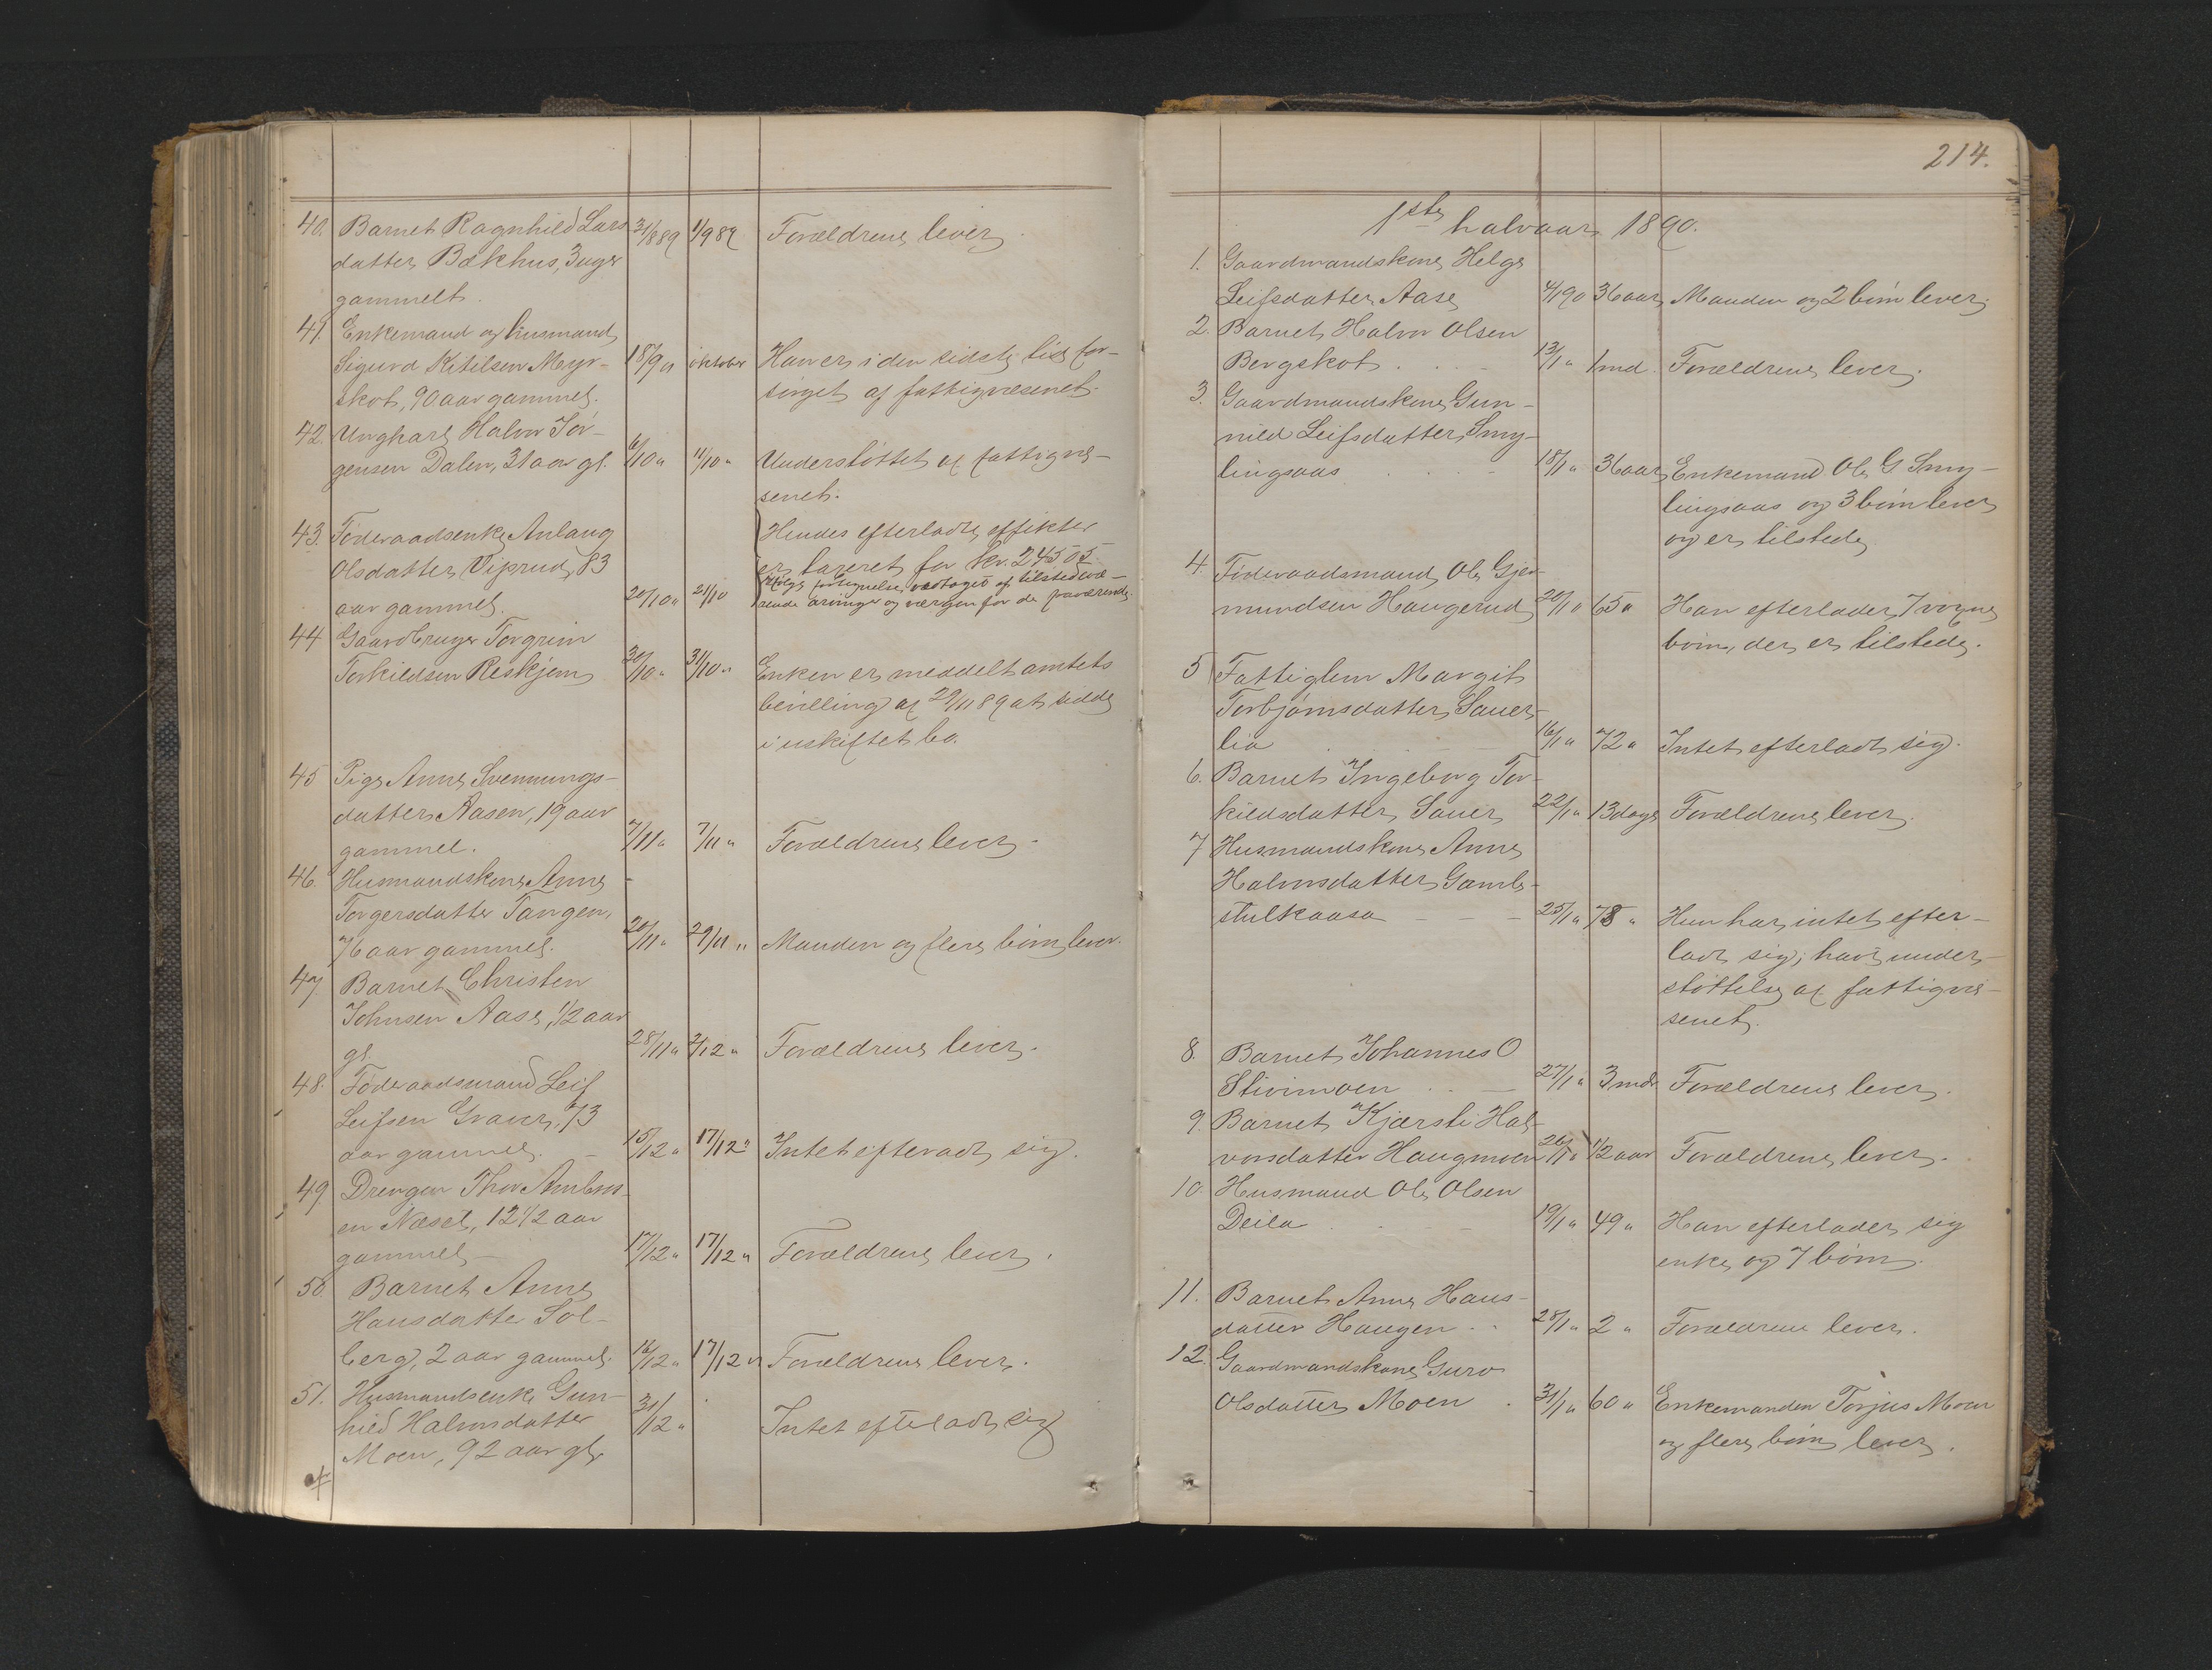 40. Barnet Ragnhild Lars
datter Bakhus, 3 uger
gammelt.
31/8 89 1/9 89 Forældrene lever.
41. Enkemand og husmand
Sigurd Kitilsen Myr-
skot, 90 aar gammel.
18/9 " oktober Han er i den sidste tid for-
sørget af fattigvæsenet.
42. Ungkarl Halvor Jør-
gensen Dalen, 31 aar gl.
6/10 " 11/10 " Understöttet af fattigvæ-
senet.
43. Föderaadsenke Anlaug
Olsdatter Viprud, 83
aar gammel.
20/10 " 21/10 Hendes efterladte effekter
er taxeret for kr. 245.05.
ifölge fortegnelse vedtaget af tilstedevæ-
rende arvinger og værgen for de fraværende.
44 Gaardbruger Torgrim
Torkildsen Riskjem
30/10 " 31/10 " Enken er meddelt amtets
bevilling af 29/11 89 at sidde
i uskiftet bo.
45 Pige Anne Svennungs-
datter Aasen, 19 aar
gammel.
7/11 " 7/11 " Forældrene lever.
46. Husmandskone Anne
Torgersdatter Tangen,
76 aar gammel.
20/11 " 29/11 " Manden og flere börn lever.
47. Barnet Christen
Johnsen Aase, 1/2 aar
gl.
28/11 " 2/12 " Forældrene lever.
48. Föderaadsmand Leif
Leifsen Graver, 73
aar gammel.
15/12 " 17/12 " Intet efterladt sig.
49 Drengen Thor Ambros-
en Næset, 12 1/2 aar
gammel
17/12 " 17/12 " Forældrene lever.
50. Barnet Anne
Hansdatter Sol-
berg, 2 aar gammel.
16/12 " 17/12 " Forældrene lever.
51. Husmandsenke Gun-
hild Halvorsdatter
Moen, 92 aar gl.
31/12 " Intet efterladt sig
214.
1ste halvaar 1890.
1. Gaardmandskone Helge
Leifsdatter Aase 4/1 90 36 aar Manden og 2 börn lever.
2. Barnet Halvor Olsen
Bergskot 13/1 " 1 md. Forældrene lever.
3. Gaardmandskone Gun-
nild Leifsdatter Smy-
lingsaas 18/1 " 36 aar Enkemand Ole G. Smy-
lingsaas og 3 börn lever
og er tilstede
4. Föderaadsmand Ole Gjer-
mundsen Haugerud 20/1 " 65 " Han efterlader 7 voxne
börn, der er tilstede.
5 Fattiglem Margit
Torbjörnsdatter Sauer-
lia 16/1 " 72 " Intet efterladt sig.
6. Barnet Ingeborg Tor-
kildsdatter Sauer 22/1 " 13 dage Forældrene lever.
7 Husmandskone Anne
Halvorsdatter Gamle-
stulkaasa 25/1 " 78 " Hun har intet efter-
ladt sig; havt under-
støttelse af fattigvæ-
senet.
8. Barnet Johannes O
Stivimoen 27/1 " 3 mdr Forældrene lever.
9. Barnet Kjærsti Hal-
vorsdatter Haugmoen 26/1 " 1/2 aar Forældrene lever.
10. Husmand Ole Olsen
Deila 19/1 " 49 " Han efterlader sig
enke og 7 börn.
11. Barnet Anne Hans-
datter Haugen 28/1 " 2 " Forældrene lever.
12. Gaardmandskone Guro
Olsdatter Moen 31/1 " 60 " Enkemanden Torjus Moen
og flere börn lever.